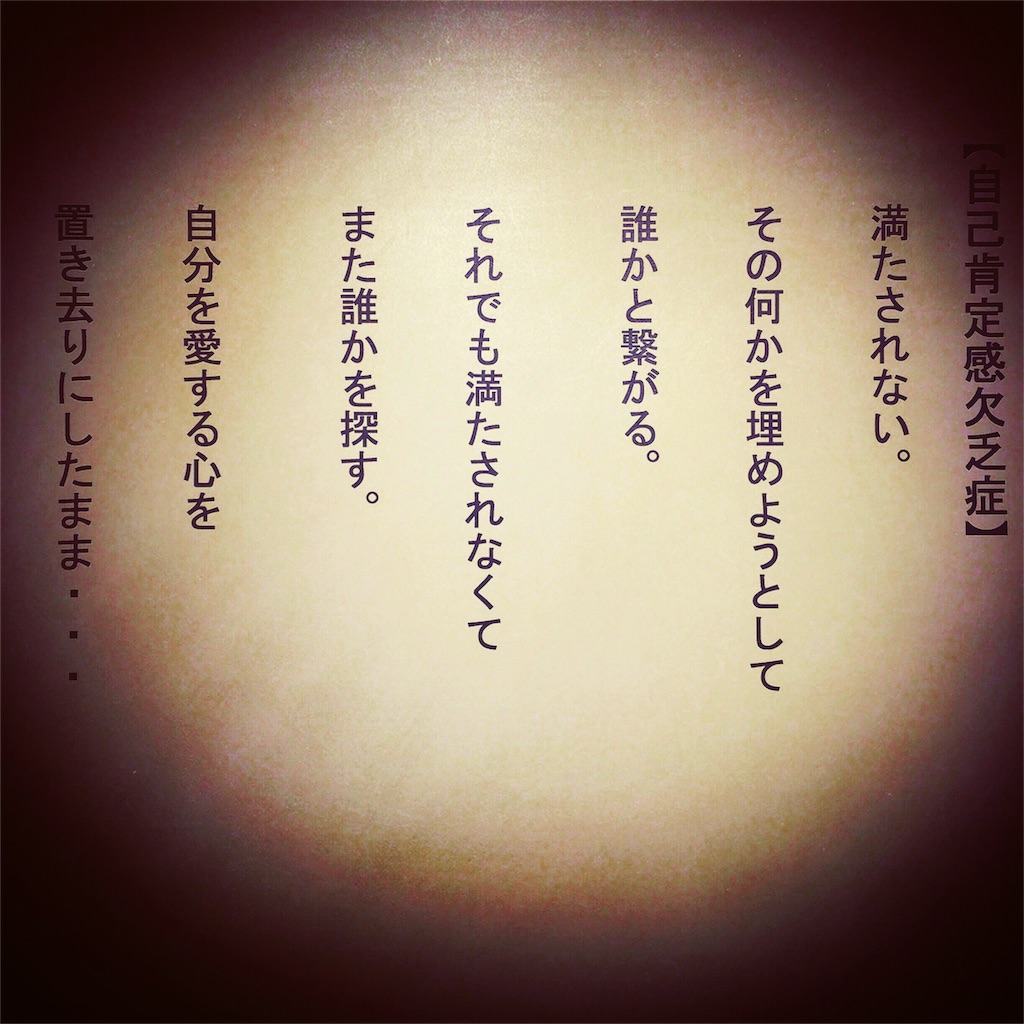 【自己肯定感欠乏症】
満たされない。
その何かを埋めようとして
誰かと繋がる。
それでも満たされなくて
また誰かを探す。
自分を愛する心を
置き去りにしたまま・・・